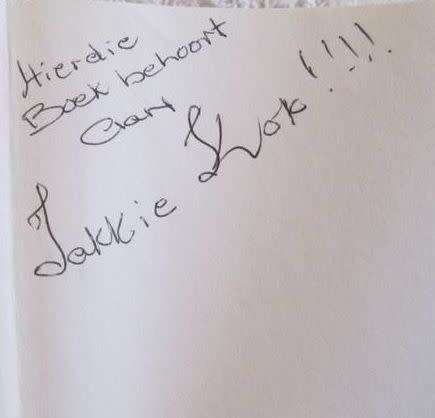 Hierdie
Boek behoort
aan
Jakkie Kok!!!!